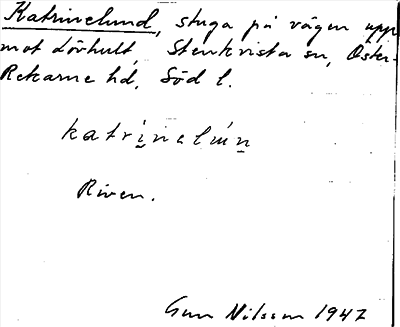 Katrinelund, stuga på vägen upp
mot Lövhult, Stenkvista sn, Öster-
Rekarne hd, Söd l.
katrinelun
Riven.
Gun Nilsson 1947